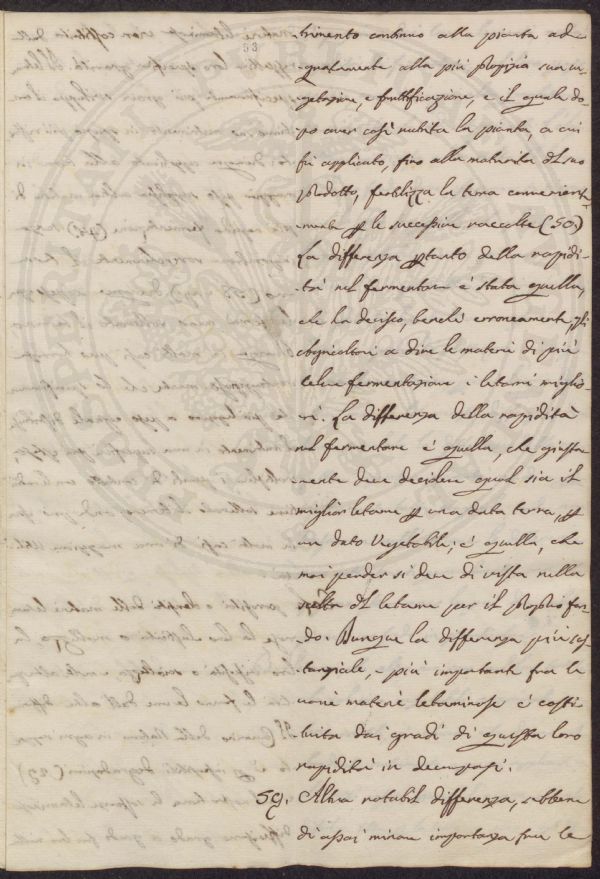 53
trimento continuo alla pianta ade-
quatamente alla più propizia sua ve-
getazione, e fruttificazione, e il quale do-
po aver così nutrita la pianta, a cui
fù applicato, fino alla maturità del suo
prodotto, fertilizza la terra conveniente-
mente per le successive raccolte (50.)
La differenza pertanto della rapidi-
tà nel fermentare è stata quella,
che ha deciso, benchè erroneamente, gli
Agricoltori a dire le materie di più
celere fermentazione i letami miglio-
ri. La differenza della rapidità
nel fermentare è quella, che giusta-
mente deve decidere qual sia il
miglior letame per una data terra, per
un dato Vegetabile; è quella, che
mai perder si deve di vista nella
scelta del letame per il proprio fon-
do. Dunque la differenza più sos-
tanziale, e più importante fra le
varie materie letaminose è costi-
tuita dai gradi di questa loro
rapidità in decomporsi.
59. Altra notabil differenza, sebbene
di assai minore importanza fra le